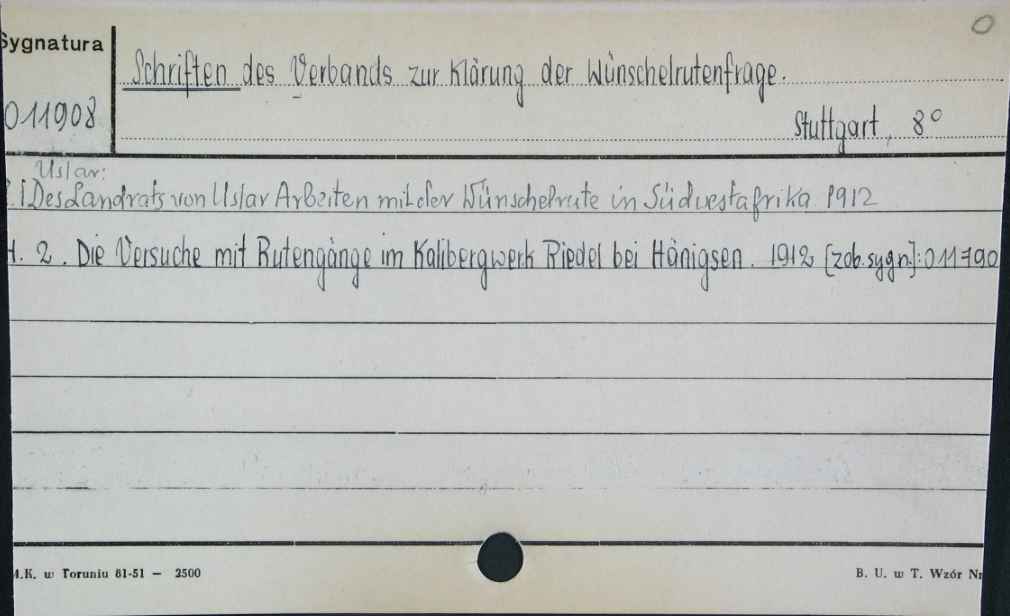 0
Sygnatura
Schriften des Verbands zur Klärung der Wünschelrutenfrage.
011908
Stuttgart, 8°
Uslar:
1 Des Landrats von Uslar Arbeiten mit der Wünschelrute in Südwestafrika 1912
H. 2. Die Versuche mit Rutengänge im Kalibergwerk Riedel bei Hänigsen. 1912 [zob. sygn.]: 011790
M.K. w Toruniu 81-51 — 2500
B. U. w T. Wzór Nr